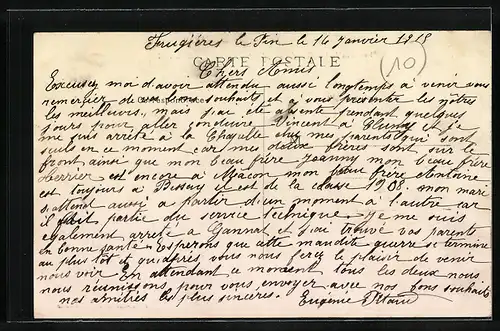 Frugières le Pin le 16 Janvier 1915
CARTE POSTALE
10
Chers Amis
Excusez moi d'avoir attendu aussi longtemps à venir vous
remercier de vos bons souhaits et à vous présenter les nôtres
les meilleurs, mais j'ai été absente pendant quelques
jours pour aller conduire Vincent à Cluny et je
me suis arrêté à la Chapelle chez mes parents qui sont
seuls en ce moment car mes deux frères sont sur le
front ainsi que mon beau frère Joanny mon beau frère
est encore à Macon mon beau frère Antoine
est toujours à il est de la classe 1908. mon mari
s'attend aussi a partir d'un moment à l'autre car
il fait partie du service technique. Je me suis
egalement arreté a Gannat et j'ai trouvé vos parents
en bonne santé. Esperons que cette maudite guerre se termine
au plus tôt et qu'après vous nous ferez le plaisir de venir
nous voir. En attendant ce moment tous les deux nous
nous réunissons pour vous envoyer avec nos bons souhaits
nos amitiés les plus sincères. Eugénie